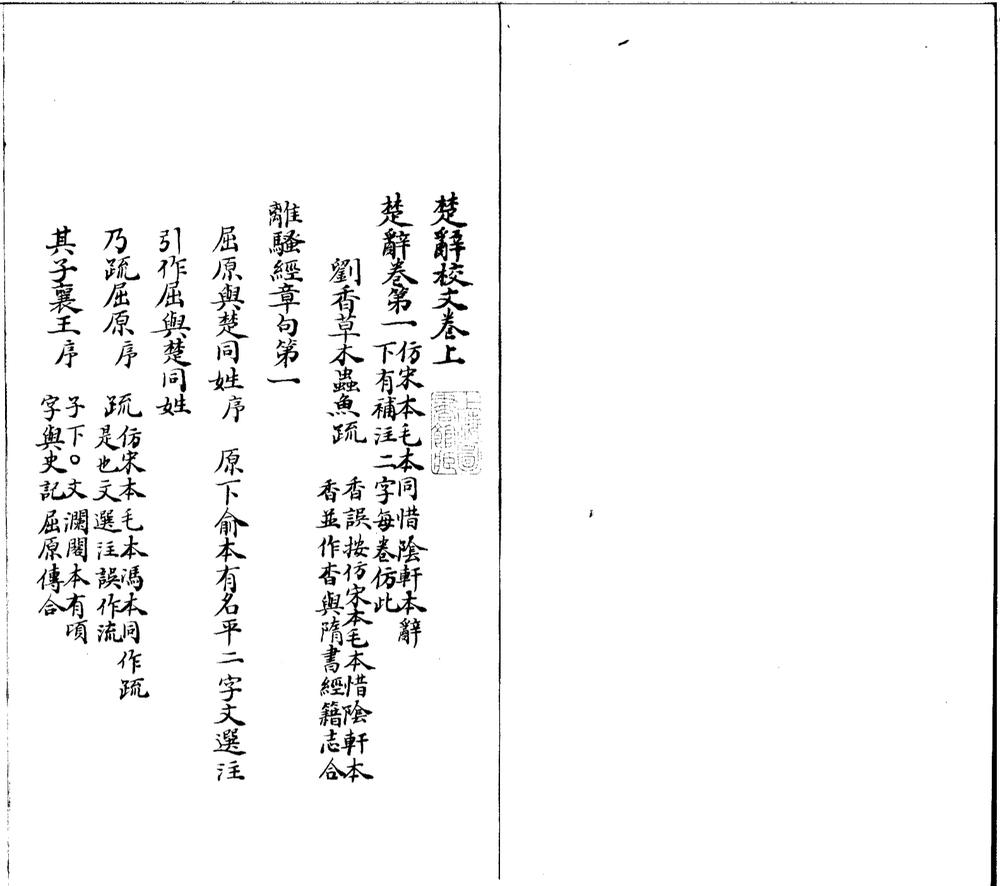 楚辭校文卷上
上海圖書館藏
楚辭卷第一
仿宋本毛本同惜陰軒本辭
下有補注二字每卷仿此
劉香草木蟲魚疏
香誤按仿宋本毛本惜陰軒本
香並作杳與隋書經籍志合
離騷經章句第一
屈原與楚同姓序 原下俞本有名平二字文選注
引作屈與楚同姓
乃疏屈原序
疏仿宋本毛本馮本同作䟽
是也文選注誤作流
其子襄王序
子下○文瀾閣本有頃
字與史記屈原傳合